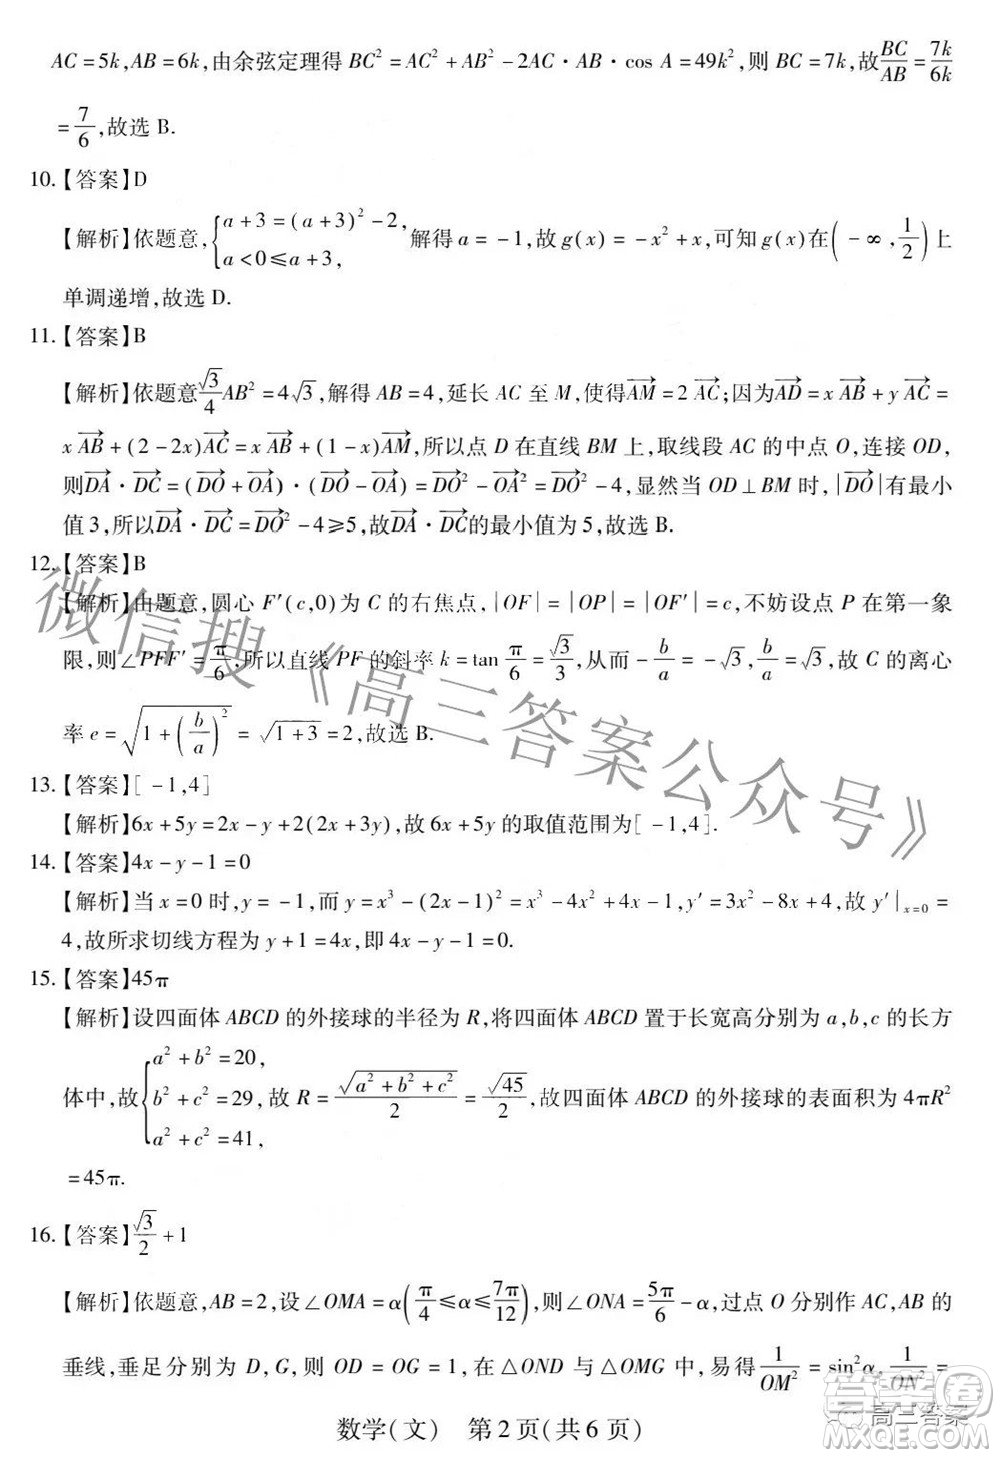 AC=5k,AB=6k,由余弦定理得 BC²=AC²+AB²-2AC·AB·cos A=49k²,则 BC=7k,故BC/AB=7k/6k
=7/6,故选 B.
10.【答案】D
【解析】依题意,{a+3=(a+3)²-2, a<0≤a+3, 解得 a=-1,故 g(x)=-x²+x,可知 g(x)在(-∞,1/2)上
单调递增,故选 D.
11.【答案】B
【解析】依题意√3/4AB²=4√3,解得 AB=4,延长 AC 至 M,使得→AM=2→AC;因为→AD=x→AB+y→AC=
x→AB+(2-2x)→AC=x→AB+(1-x)→AM,所以点 D 在直线 BM 上,取线段 AC 的中点 O,连接 OD,
则→DA·→DC=(→DO+→OA)·(→DO-→OA)=→DO²-→OA²=→DO²-4,显然当 OD⊥BM 时,|→DO|有最小
值 3,所以→DA·→DC=→DO²-4≥5,故→DA·→DC的最小值为 5,故选 B.
12.【答案】B
【解析】由题意,圆心 F′(c,0)为 C 的右焦点,|OF|=|OP|=|OF′|=c,不妨设点 P 在第一象
限,则∠PFF′=π/6,所以直线 PF 的斜率 k=tan π/6=√3/3,从而-b/a=-√3,b/a=√3,故 C 的离心
率 e=√(1+(b/a)²)=√(1+3)=2,故选 B.
13.【答案】[-1,4]
【解析】6x+5y=2x-y+2(2x+3y),故 6x+5y 的取值范围为[-1,4].
14.【答案】4x-y-1=0
【解析】当 x=0 时,y=-1,而 y=x³-(2x-1)²=x³-4x²+4x-1,y′=3x²-8x+4,故 y′|x=0=
4,故所求切线方程为 y+1=4x,即 4x-y-1=0.
15.【答案】45π
【解析】设四面体 ABCD 的外接球的半径为 R,将四面体 ABCD 置于长宽高分别为 a,b,c 的长方
体中,故{a²+b²=20, b²+c²=29, a²+c²=41, 故 R=√(a²+b²+c²)/2=√45/2,故四面体 ABCD 的外接球的表面积为 4πR²
=45π.
16.【答案】√3/2+1
【解析】依题意,AB=2,设∠OMA=α(π/4≤α≤7π/12),则∠ONA=5π/6-α,过点 O 分别作 AC,AB 的
垂线,垂足分别为 D,G,则 OD=OG=1,在△OND 与△OMG 中,易得1/OM²=sin²α,1/ON²=
数学(文) 第 2 页(共 6 页)
微信搜《高三答案公众号》
高三答案
答案圈
MXQE.COM